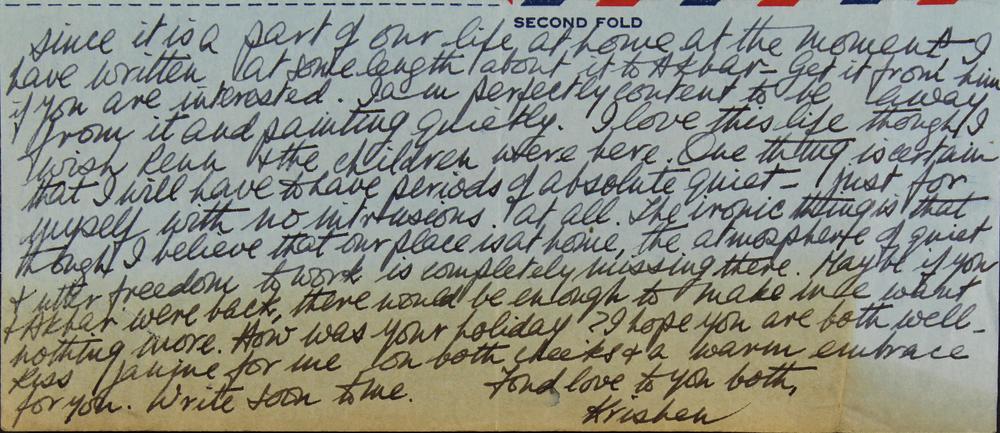 SECOND FOLD
since it is a part of our life at home at the moment I
have written at some length about it to Akbar - get it from him
if you are interested. I am perfectly content to be away
from it and painting quietly. I love this life though I
wish Renu & the children were here. One thing is certain
that I will have to have periods of absolute quiet - just for
myself with no intrusions at all. The ironic thing is that
though I believe that our place is at home, the atmosphere of quiet
& utter freedom to work is completely missing there. Maybe if you
& Akbar were back, there would be enough to make me want
nothing more. How was your holiday? I hope you are both well -
Kiss Janine for me on both cheeks & a warm embrace
for you. Write soon to me. Fond love to you both,
Krishen